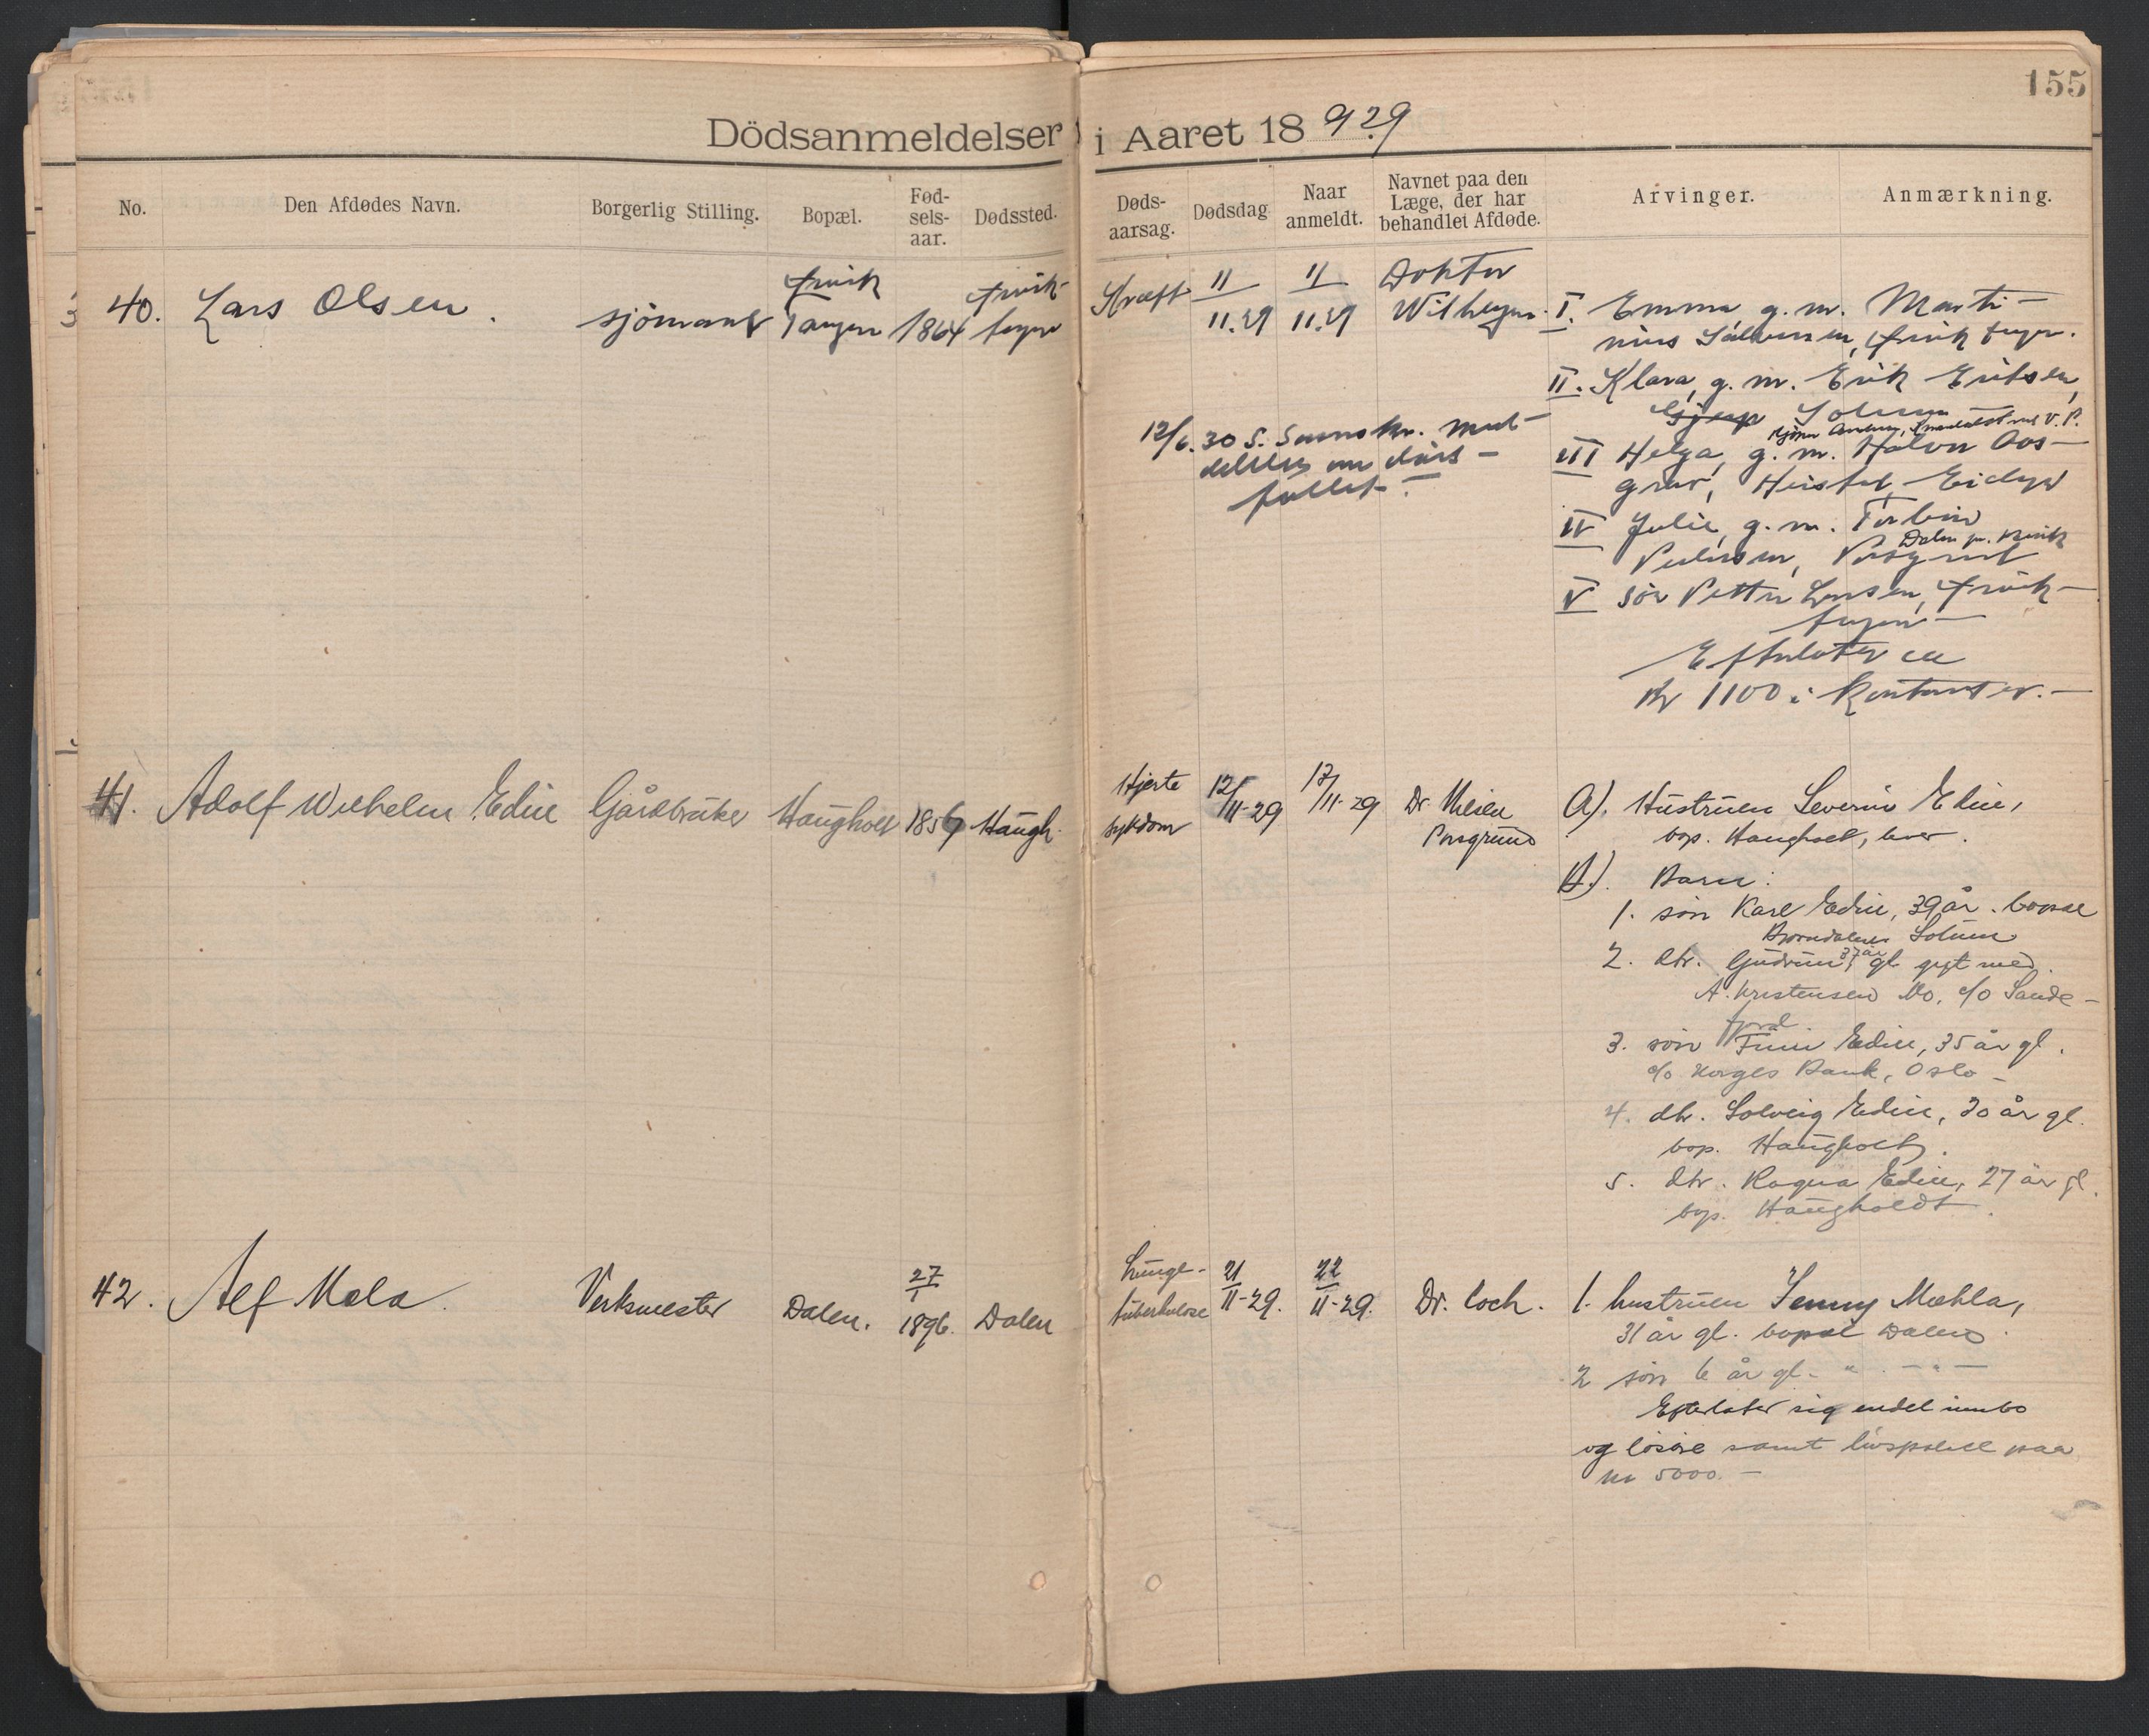 155
Dödsanmeldelser i Aaret 18 929
No. Den Afdødes Navn. Borgerlig Stilling. Bopæl. Fød-sels-aar. Dødssted. Døds-aarsag. Dødsdag Naar anmeldt. Navnet paa den Læge, der har behandlet Afdøde. Arvinger. Anmærkning.
40. Lars Olsen. sjömand Tangen 1864
Kræft 11/11.29 11/11.29 Doktor
I. Emma g. m. Marti-
nius
II. Klara, g. m. Erik Eriksen,
Gjerp Solum
III Helga, g. m. Halvor Aas-
grav,
IV Julie, g. m. Torbin
Dalen pr. Brevik
Pedersen, Porsgrund
V sön Petter Larsen,
Efterlater ca
Kr 1100 i kontanter.-
12/6.30 S. Sorenskr. med-
delelse om döds-
fallet.
41. Adolf Wilhelm Edin Gårdbruker Haugholt 1856 Haugh.
Hjerte
sykdom
12/11-29 12/11-29 Dr. Nilsen
Porsgrund
A). Hustruen Severin Edin,
bop. Haugholt, lever.
B). Barn:
1. sön Karl Edin, 39 år. bopæl
Bjorndalen Solum
2. dtr. Gudrun, 37 år gl. gift med
A. Kristensen Mo, c/o Sande-
fjord
3. sön Finn Edin, 35 år gl.
c/o Norges Bank, Oslo -
4. dtr. Solveig Edin, 30 år gl.
bop. Haugholt.
5. dtr. Ragna Edin, 27 år gl.
bop. Haugholdt.
42. Alf Mæla. Verksmester Dalen. 27/1 1896. Dalen
Lunge-
tuberkulose
21/11-29. 22/11-29. Dr. Coch.
1. hustruen Jenny Mæhla,
31 år gl. bopæl Dalen.
2 sön 6 år gl. - " - " -
Efterlater sig endel innbo
og lösöre samt livspolice paa
kr 5000.-